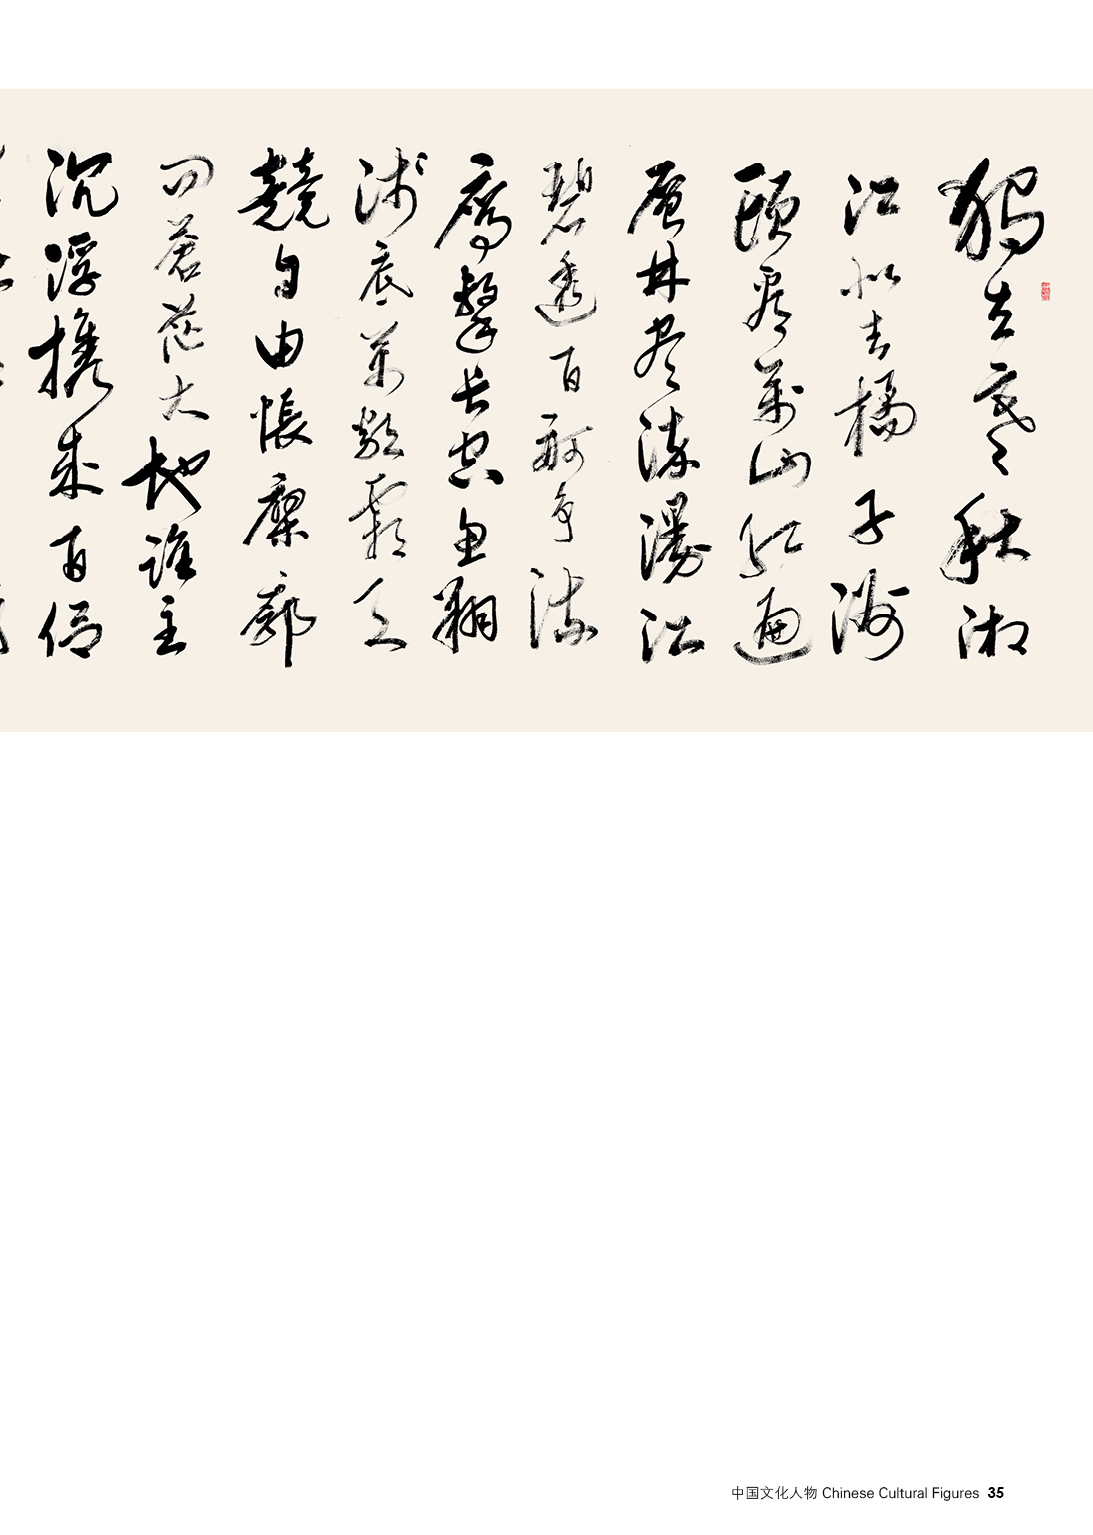 獨立寒秋湘
江北去橘子洲
頭看萬山红遍
层林尽染漫江
碧透百舸争流
鹰擊长空鱼翔
浅底萬類霜天
競自由悵寥廓
问蒼茫大地谁主
沉浮携来百侣
中国文化人物 Chinese Cultural Figures 35